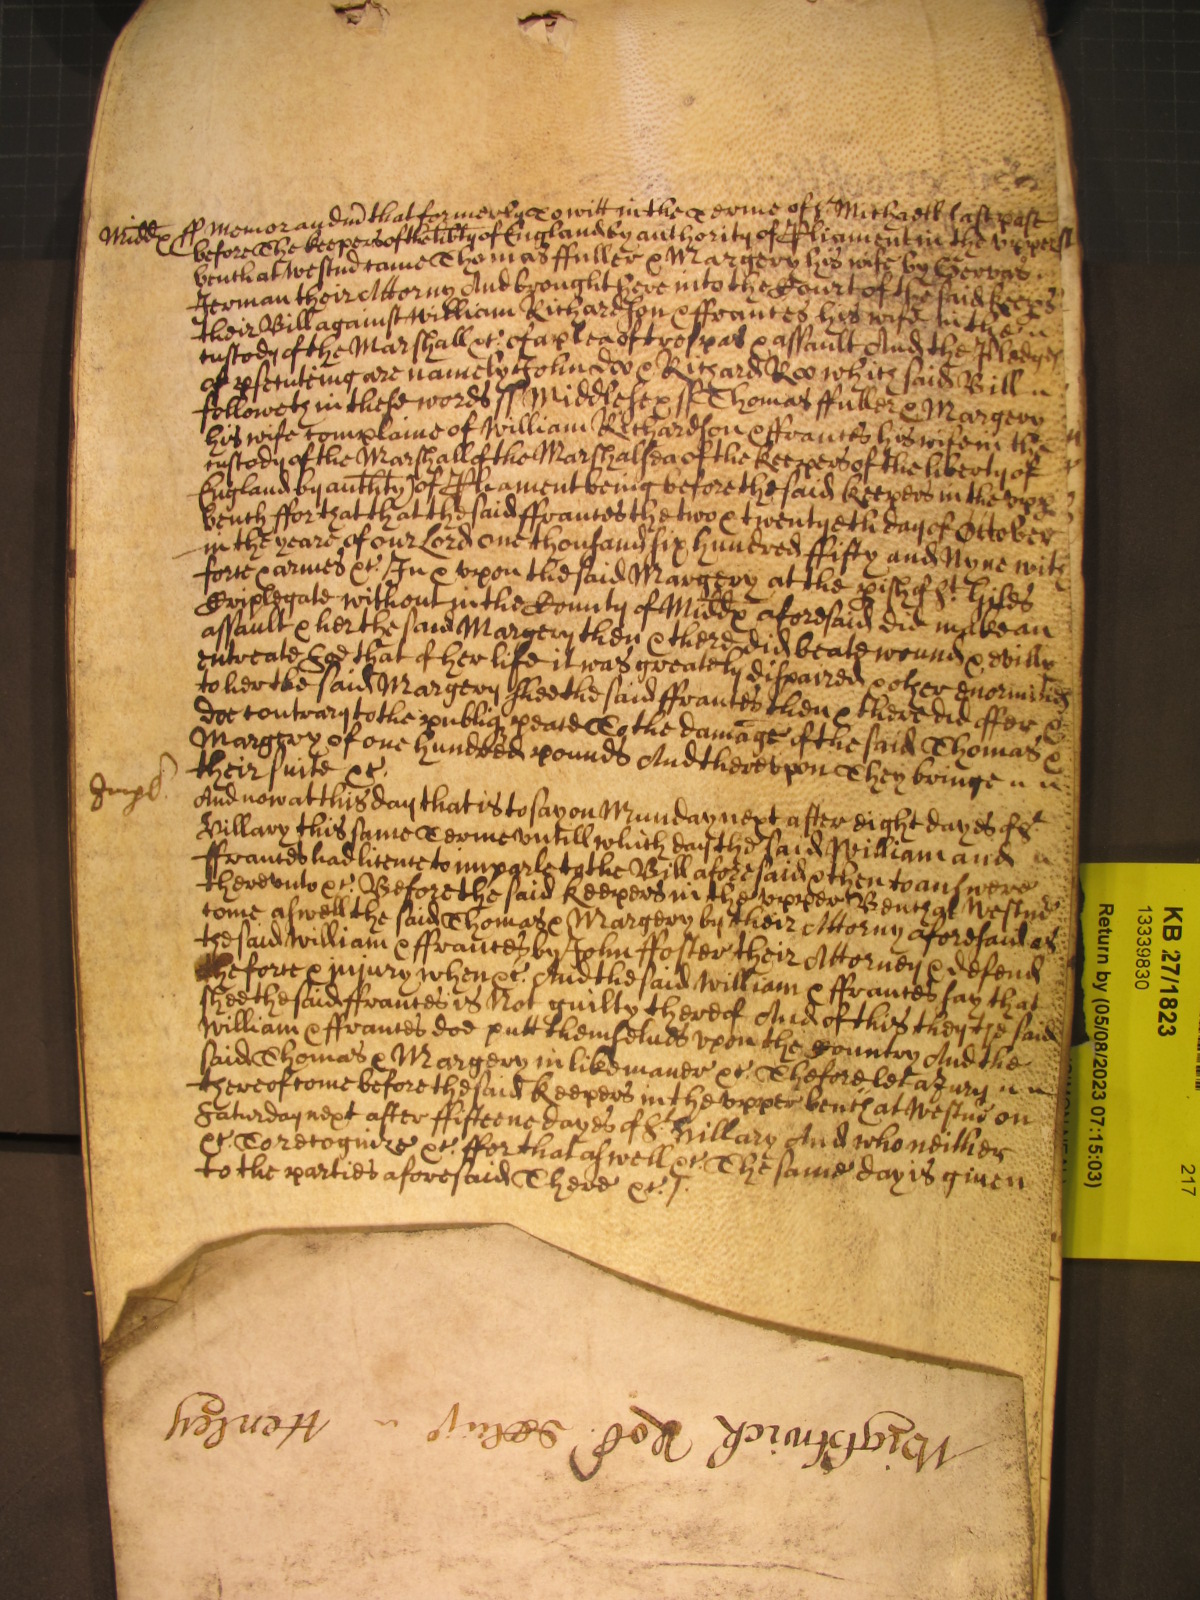 Midd x ss Memorandū that formerly To witt in the Terme of St Michaell last past
before The keepers of the lib̄ty of England by authority of Pliament in the upper
bench at Westm̄ came Thomas ffuller & Margery his wife by Gervas
Jerman their Attorny And brought here into the Court of the said keeps
their Bill against William Richardson & ffrances his wife in the
custody of the Marshall &c. of a plea of trespas & assault And the Pledges
of psecuteing are namely John Doo & Richard Roo which said Bill
followeth in these words ss Middlesex ss Thomas ffuller & Margery
his wife complaine of William Richardson & ffrances his wife in the
custody of the Marshall of the Marshalsea of the keepers of the liberty of
England by auth̄ty of Pliament being before the said keepers in the upp
bench ffor that that the said ffrances the two & twentyeth day of October
in the yeare of our Lord one thousand six hundred ffifty and Nyne with
force & armes &c. In & upon the said Margery at the pish of St. Giles
Criplegate without in the County of Midd x aforesaid did make an
assault & her the said Margery then & there did beate wound & evilly
entreate Soe that of her life it was greately dispaired & other enormities
to her the said Margery shee the said ffrances then & there did offer &
doe contrary to the publiq peace To the damage of the said Thomas &
Margery of one hundred pounds And thereupon They bringe
their suite &c.
Impl.
And now at this day that is to say on Munday next after eight dayes of St
Hillary this same Terme untill which day the said William and
ffrances had licence to imparle to the Bill aforesaid & then to answere
thereunto &c. Before the said keepers in the upper Bench at Westm̄
come aswell the said Thomas & Margery by their Attorny aforesaid as
the said William & ffrances by John ffoster their Attorney & defend
the force & injury when &c. And the said William & ffrances say that
shee the said ffrances is Not guilty thereof And of this they the said
William & ffrances doe putt themselues upon the Country And the
said Thomas & Margery in like maner &c. Thefore let a Jury
thereof come before the said keepers in the upper bench at Westm̄ on
Saturday next after ffifteene dayes of St Hillary And who neither
&c. To recognize &c. ffor that aswell &c. The same day is given
to the parties aforesaid There &c.
Wightwick Ro
Henley
KB 27/1823
13339830
217
Return by (05/08/2023 07:15:03)